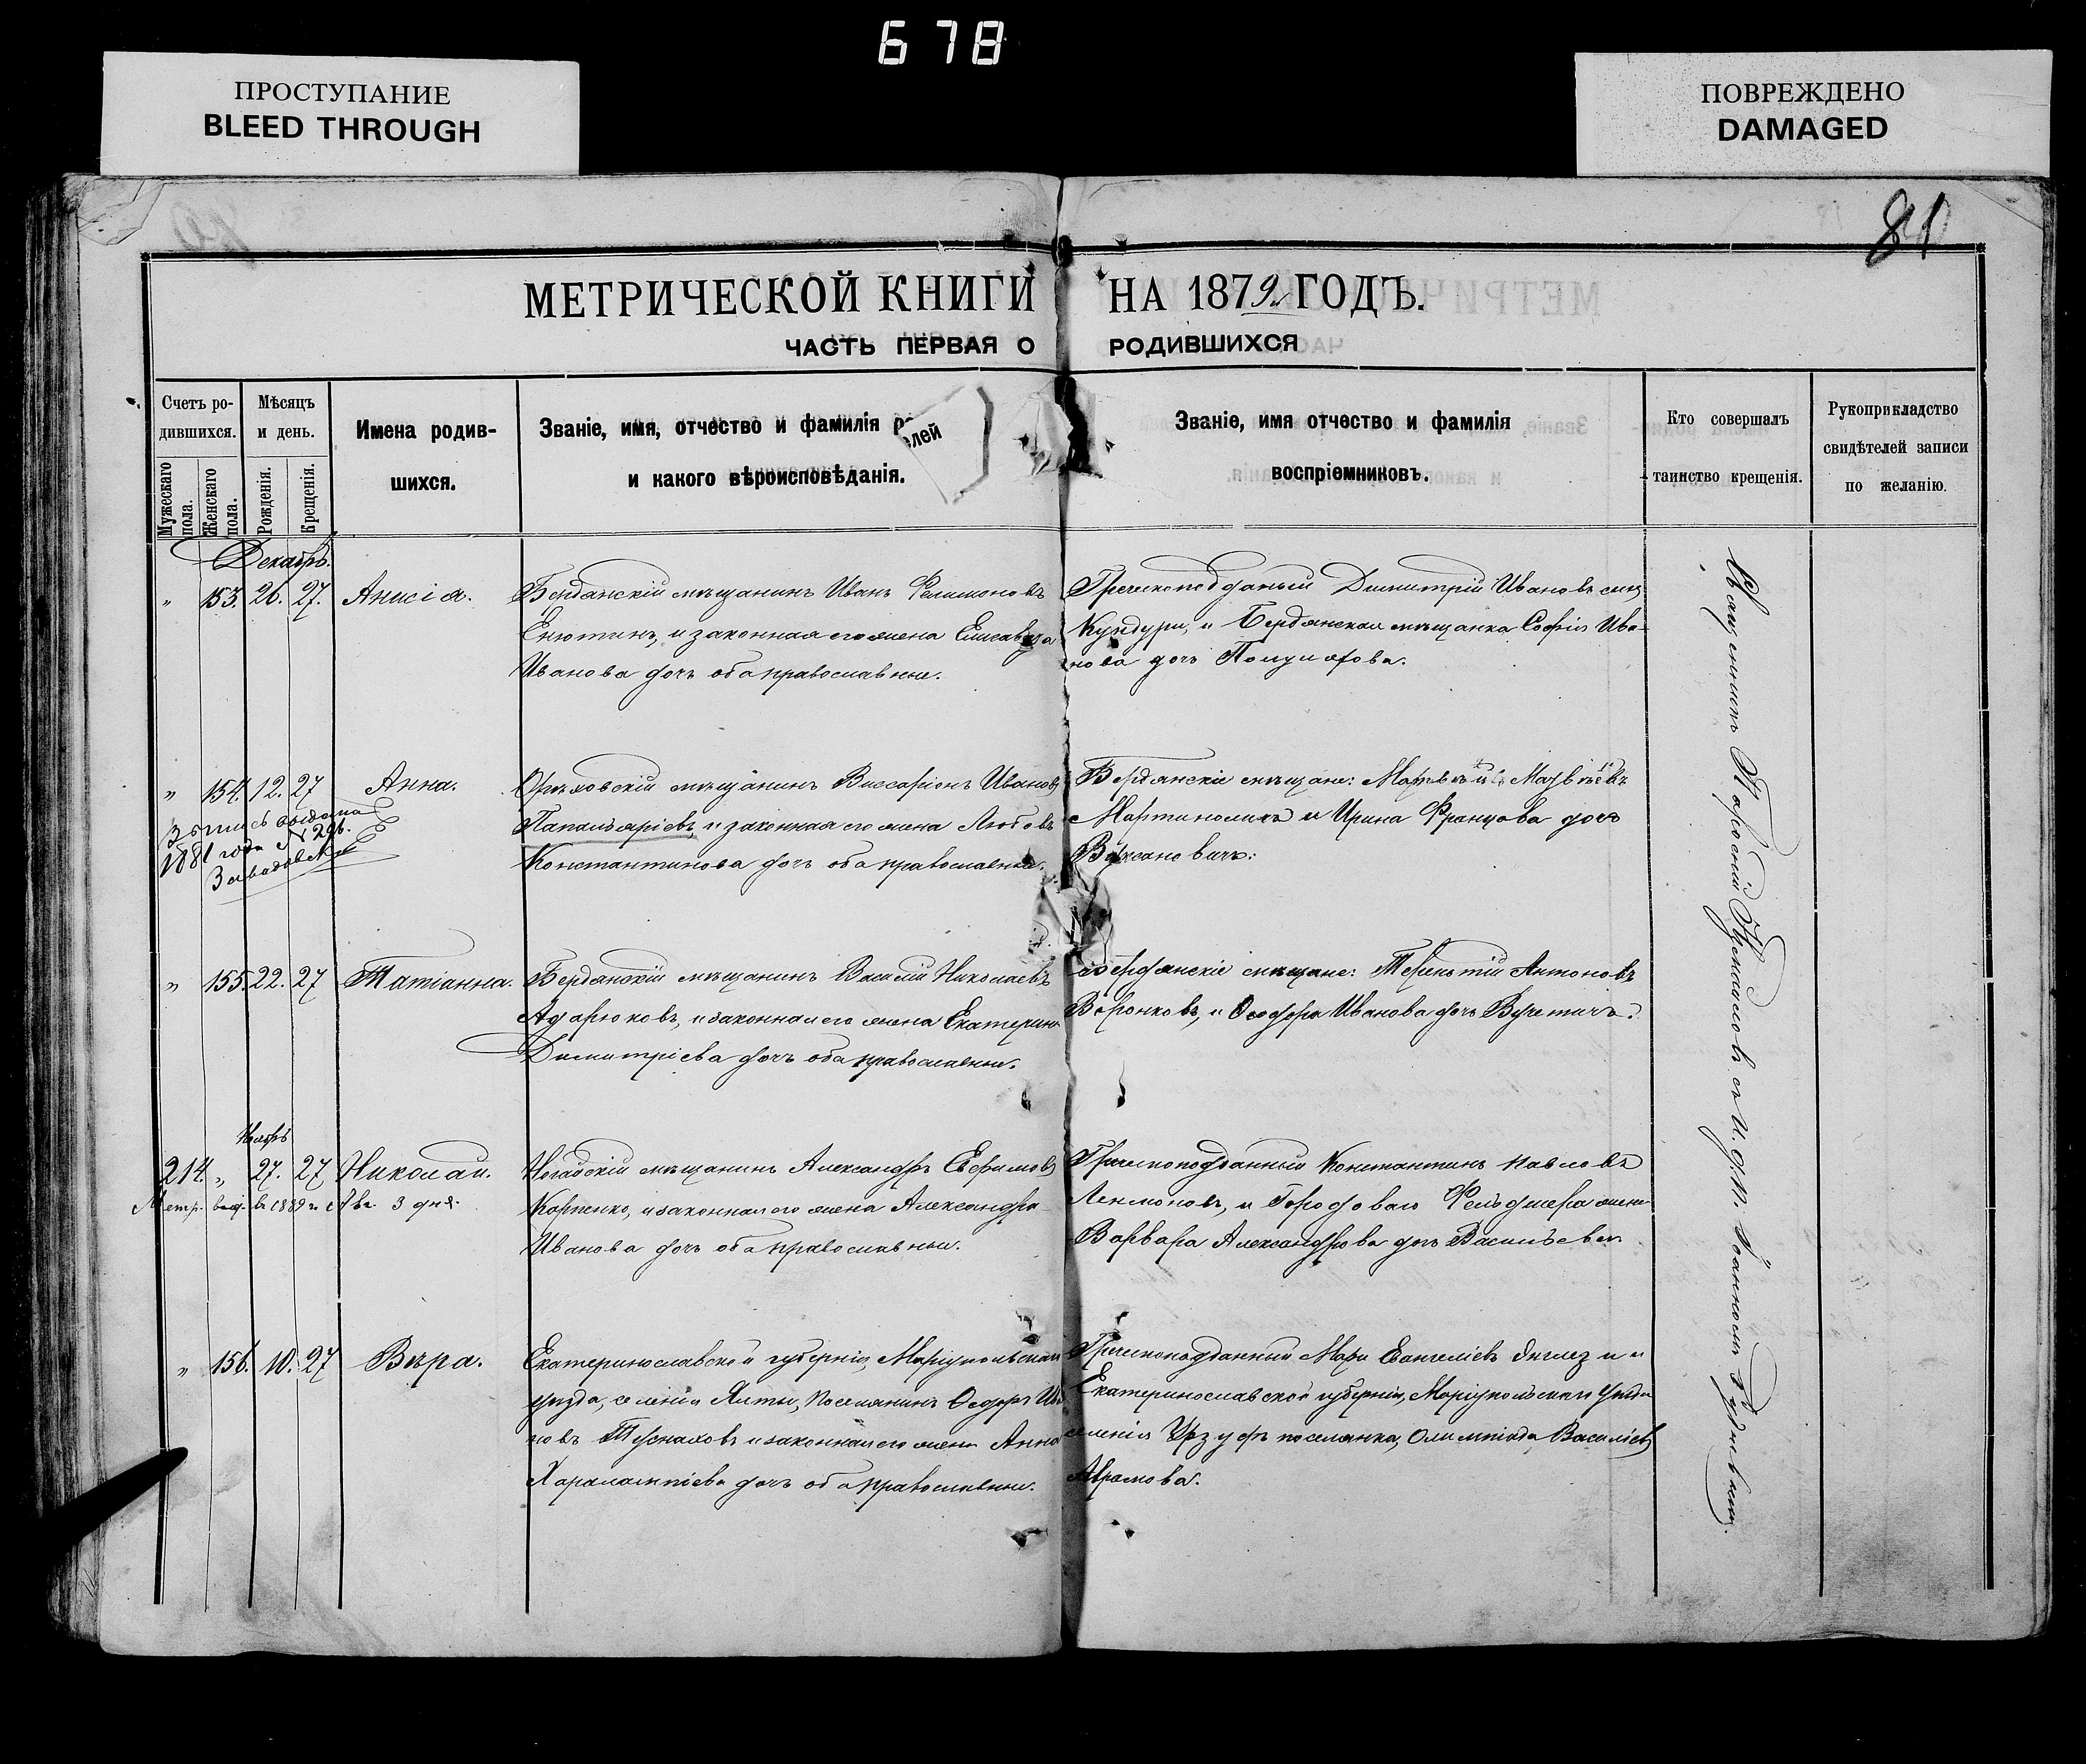 678
ПРОСТУПАНИЕ
BLEED THROUGH
ПОВРЕЖДЕНО
DAMAGED
81
МЕТРИЧЕСКОЙ КНИГИ НА 1879 ГОДЪ.
ЧАСТЬ ПЕРВАЯ О РОДИВШИХСЯ
Счетъ ро-
дившихся.
Мужескаго пола.
Женскаго пола.
Мѣсяцъ
и день.
Рожденія.
Крещенія.
Имена родив-
шихся.
Званіе, имя, отчество и фамилія р елей
и какого вѣроисповѣданія.
Званіе, имя отчество и фамилія
воспріемниковъ.
Кто совершалъ
таинство крещенія.
Рукоприкладство
свидѣтелей записи
по желанію.
Декабрь.
" 153. 26. 27. Анисія.
Бердянскій мѣщанинъ Иванъ Филимоновъ
Енютинъ, и законная его жена Елисавета
Иванова дочь оба православные.
Греческоподданый Димитрій Ивановъ сынъ
Кундури, и Бердянская мѣщанка Софія Ива-
нова дочь
" 154. 12. 27 Анна.
Орѣховскій мѣщанинъ Виссаріонъ Ивановъ
и законная его жена Любовь
Константинова дочь оба православные.
Бердянскіе мѣщане: Матвѣй Матвѣевъ
и Ирина Францова дочь
выдана
1881 года № 296.
Завадовскій
" 155. 22. 27 Татіанна.
Бердянскій мѣщанинъ Василій Николаевъ
Адарюковъ, и законная его жена Екатерина
Димитріева дочь оба православные.
Бердянскіе мѣщане: Терентій Антоновъ
Воронковъ, и Ѳеодора Иванова дочь Вучетичъ.
Ноябрь
214. " 27. 27 Николай.
Метр. выд. въ 1889 г. Авг. 3 дня.
Ногайскій мѣщанинъ Александръ Ефимовъ
Карпенко, и законная его жена Александра
Иванова дочь оба православные.
Греческоподданный Константинъ Павловъ
и Городоваго Фельдшера жена
Варвара Александрова дочь Васильева.
" 156. 10. 27 Вѣра.
Екатеринославской губерніи, Маріупольскаго
уѣзда, селенія Ялты, поселянинъ Ѳедоръ Ива
новъ и законная его жена Анна
Харалампіева дочь оба православные.
Греческоподданный Мари Евангеліевъ Инглези и
Екатеринославской губерніи, Маріупольскаго уѣзда
селенія Урзуфъ поселянка, Олимпіада Васильева
Аврамова.
Священникъ съ И. д. п. Іоанномъ